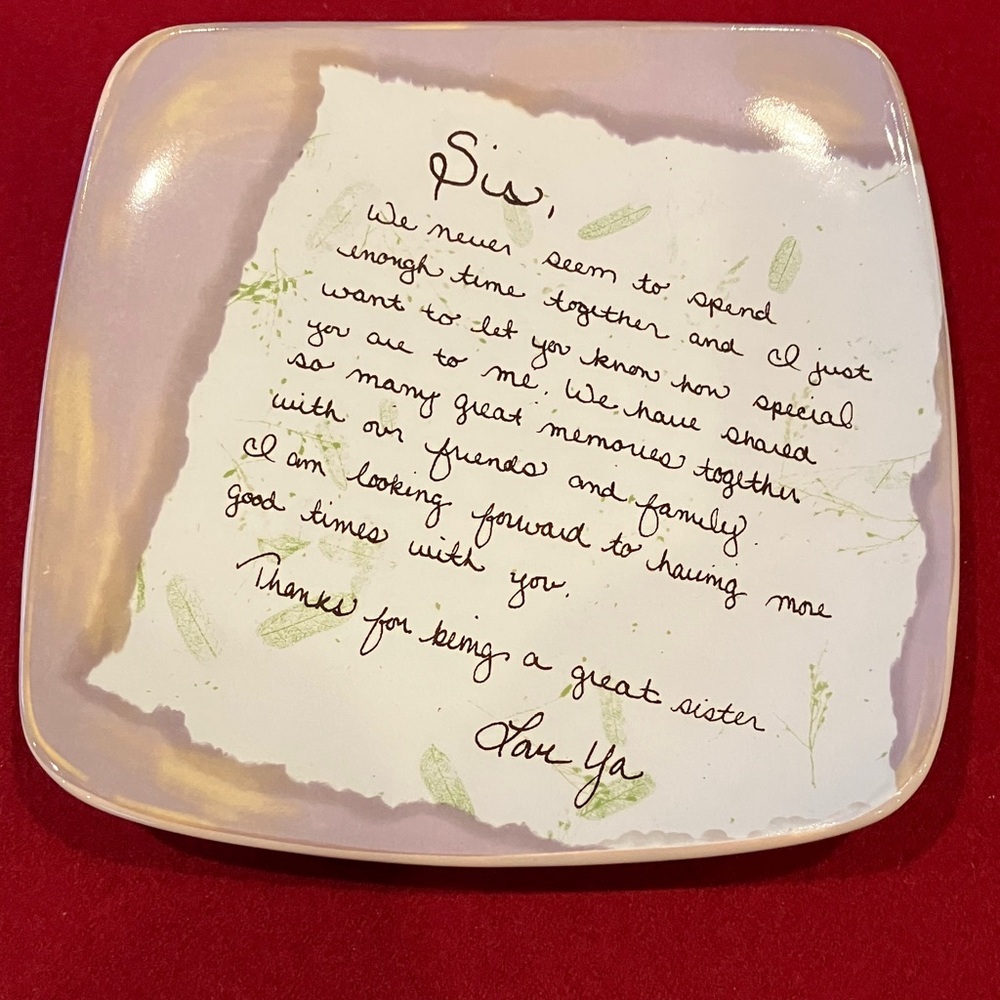 Sis,
We never seem to spend
enough time together and I just
want to let you know how special
you are to me. We have shared
so many great memories together
with our friends and family.
I am looking forward to having more
good times with you.
Thanks for being a great sister
Luv Ya